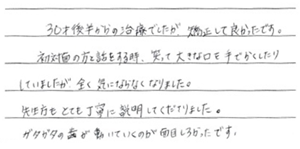 30才後半からの治療でしたが 矯正して良かったです。
初対面の方と話をする時、笑って大きな口を手でかくしたり
していましたが 全く気にならなくなりました。
先生方もとても丁寧に説明してくださりました。
ガタガタの歯が動いていくのが面白しろかったです。